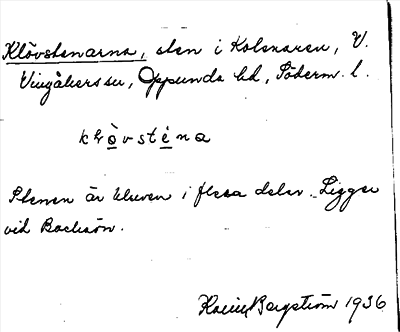 Klövstenarna, sten i Kolsnaren, V.
Vingåkers sn, Oppunda hd, Söderm. l.
klòvsténa
Stenen är kluven i flera delar. Ligger
vid Backsön.
Bergström 1936